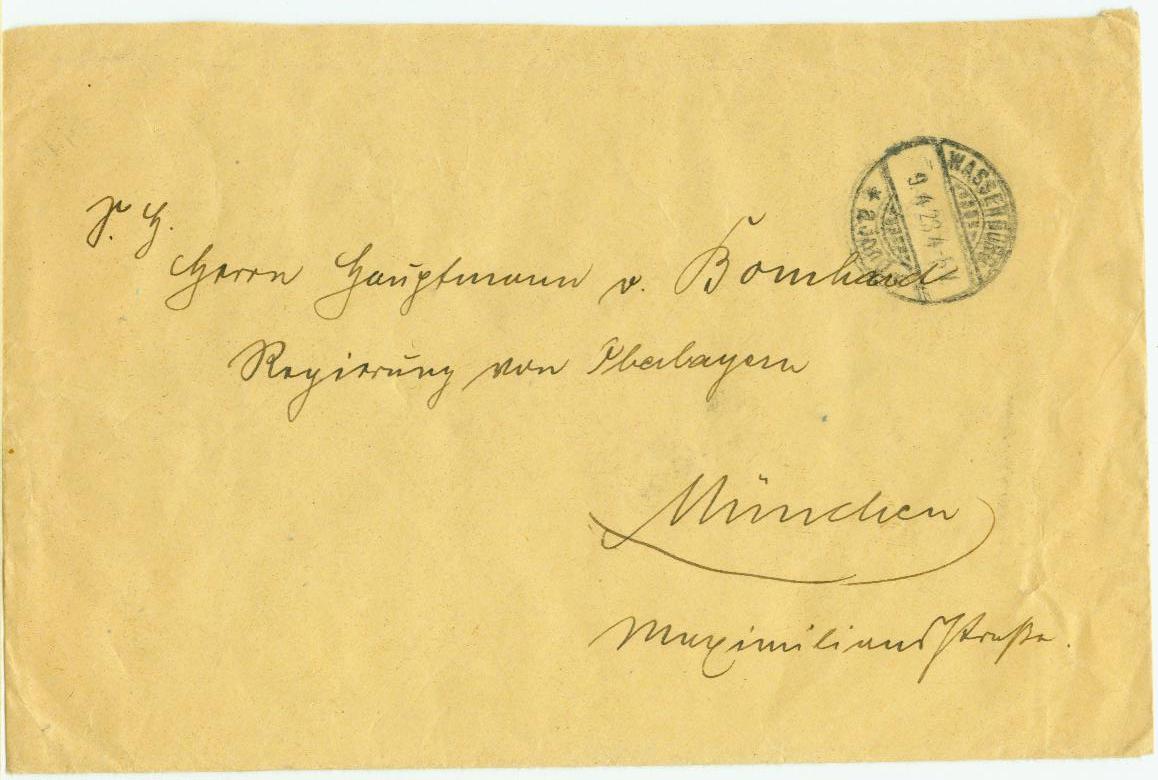 S. H.
Herrn Hauptmann v. Bomhard
Regierung von Oberbayern
München
Maximiliansstraße.
WASSENBURG
9. 4. 23. 4-5 V
a. Inn *